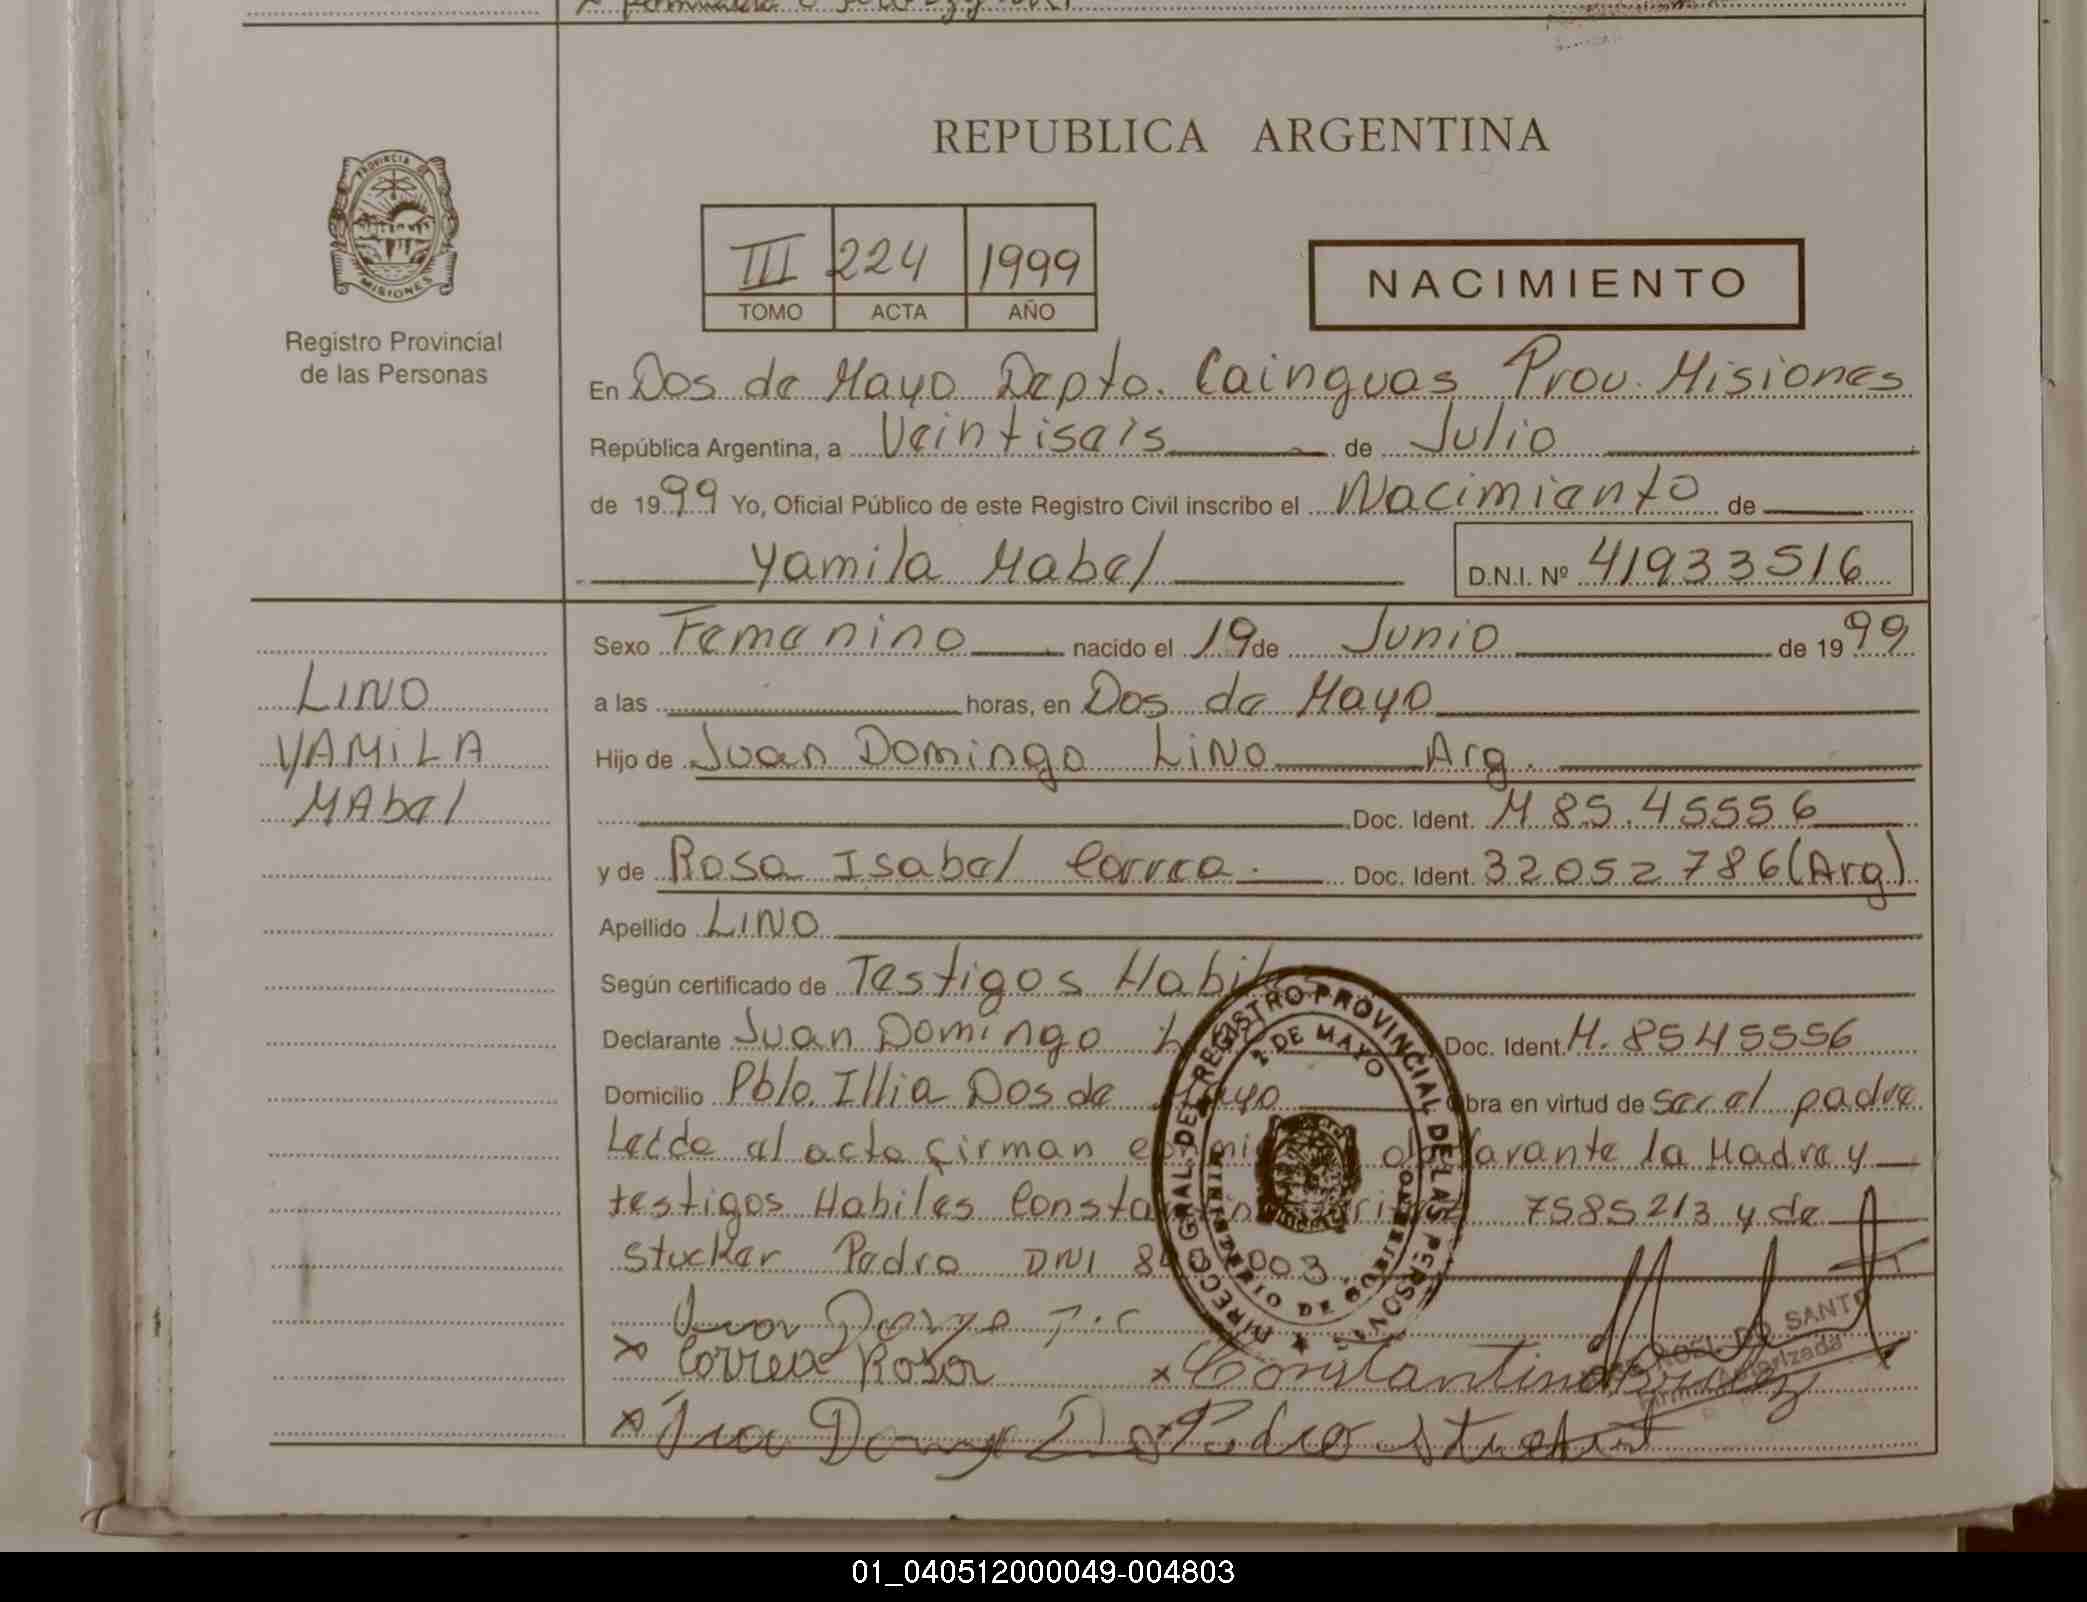 REPUBLICA ARGENTINA
PROVINCIA
MISIONES
Registro Provincial
de las Personas
III 224 1999
TOMO ACTA AÑO
NACIMIENTO
En Dos de Mayo Depto. Cainguas Prov. Misiones
República Argentina, a Veintiseis de Julio
de 1999 Yo, Oficial Público de este Registro Civil inscribo el Nacimiento de
Yamila Mabel D.N.I. Nº 41933516
LINO
YAMILA
MAbel
Sexo Femenino nacido el 19 de Junio de 1999
a las horas, en Dos de Mayo
Hijo de Juan Domingo LiNO Arg.
Doc. Ident. M 85.45556
y de Rosa Isabel Correa. Doc. Ident. 32052786 (Arg)
Apellido LINO
Según certificado de Testigos Habiles
Declarante Juan Domingo Doc. Ident. M. 8545556
Domicilio Pblo. Illia Dos de Mayo Obra en virtud de ser el padre
Leida el acta firman la Madre y
testigos Habiles 7585213 y de
Stucker Pedro DNI
DIRECC. GRAL. DEL REGISTRO PROVINCIAL DE LAS PERSONAS
2 DE MAYO
MINISTERIO DE GOBIERNO
x Correa Rosa
x Constantino
x Pedro
DO SANTO
01_040512000049-004803